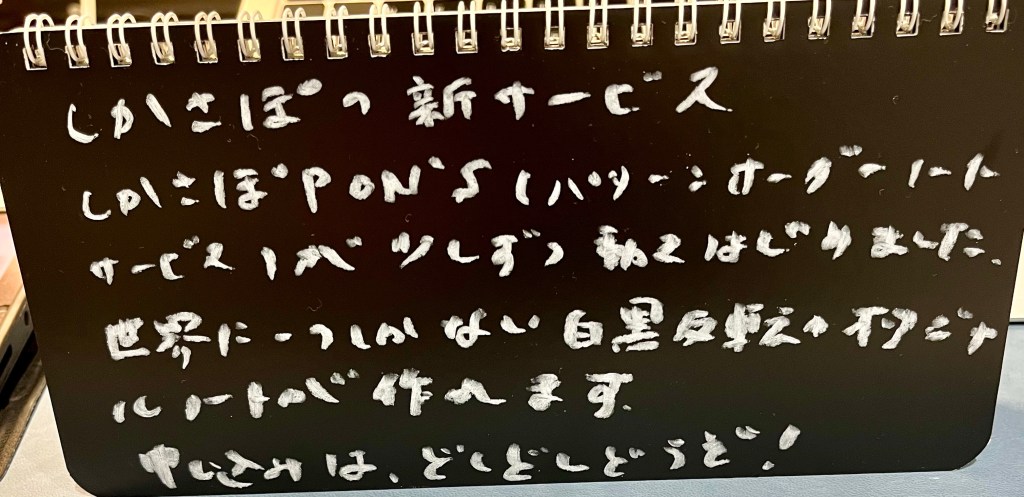 しかさぽの新サービス
しかさぽPON'S(パターンオーダーノート
サービス)が少しずつ動きはじめました。
世界に一つしかない白黒反転のオリジナ
ルノートが作れます。
申し込みは、どしどしどうぞ!